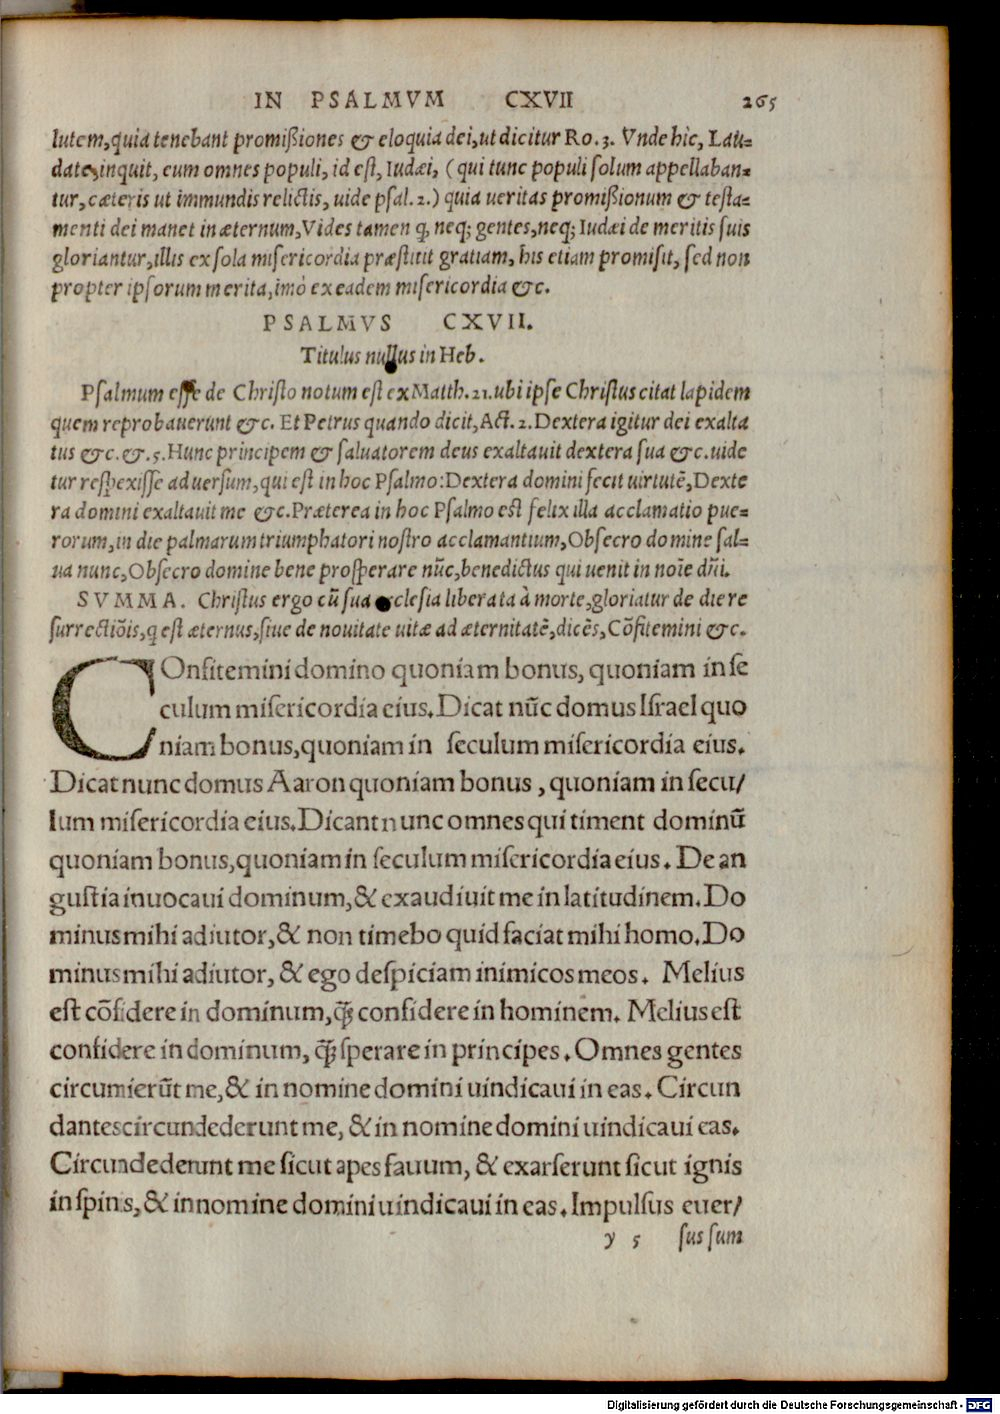 IN PSALMVM CXVII 265
lutem,quia tenebant promißiones & eloquia dei,ut dicitur Ro.3. Vnde hic, Lau-
date,inquit, eum omnes populi, id est, Iudæi, ( qui tunc populi solum appellaban-
tur, cæteris ut immundis relictis, uide psal. 2.) quia ueritas promißionum & testa-
menti dei manet in æternum,Vides tamen ꝙ, neq; gentes,neq; Iudæi de meritis suis
gloriantur,illis ex sola misericordia præstitit gratiam, his etiam promisit, sed non
propter ipsorum merita,imò ex eadem misericordia &c.
PSALMVS CXVII.
Titulus nullus in Heb.
Psalmum esse de Christo notum est ex Matth.21.ubi ipse Christus citat lapidem
quem reprobauerunt &c. Et Petrus quando dicit, Act. 2.Dextera igitur dei exalta
tus &c.&.5.Hunc principem & saluatorem deus exaltauit dextera sua &c.uide
tur respexisse ad uersum, qui est in hoc Psalmo:Dextera domini fecit uirtutē,Dexte
ra domini exaltauit me &c.Præterea in hoc Psalmo est felix illa acclamatio pue-
rorum,in die palmarum triumphatori nostro acclamantium,Obsecro domine sal-
ua nunc,Obsecro domine bene prosperare nūc,benedictus qui uenit in noīe dñi.
SVMMA. Christus ergo cū sua ecclesia liberata à morte,gloriatur de die re
surrectiōis,q est æternus,siue de nouitate uitæ ad æternitatē,dicēs,Cōfitemini &c.
COnfitemini domino quoniam bonus, quoniam in se
culum misericordia eius.Dicat nūc domus Israel quo
niam bonus,quoniam in seculum misericordia eius.
Dicat nunc domus Aaron quoniam bonus , quoniam in secu/
lum misericordia eius.Dicant nunc omnes qui timent dominū
quoniam bonus,quoniam in seculum misericordia eius . De an
gustia inuocaui dominum,& exaudiuit me in latitudinem.Do
minus mihi adiutor,& non timebo quid faciat mihi homo.Do
minus mihi adiutor, & ego despiciam inimicos meos . Melius
est cōfidere in dominum,q̄ꝫ confidere in hominem. Melius est
confidere in dominum, q̄ꝫ sperare in principes . Omnes gentes
circumierūt me,& in nomine domini uindicaui in eas . Circun
dantes circundederunt me, & in nomine domini uindicaui eas.
Circundederunt me sicut apes fauum, & exarserunt sicut ignis
in spinis,& in nomine domini uindicaui in eas .Impulsus euer/
y 5 sus sum
Digitalisierung gefördert durch die Deutsche Forschungsgemeinschaft - DFG